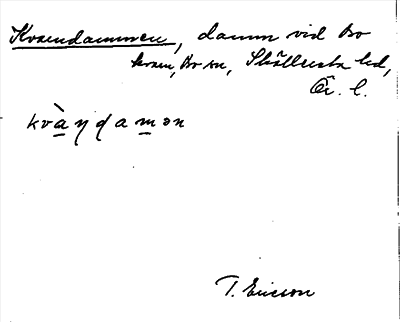 Kvarndammen, damm vid Bo
kvarn, Bo sn, Sköllersta hd,
Ör. l.
kvà̱ŋda̱mən
T. Ericson